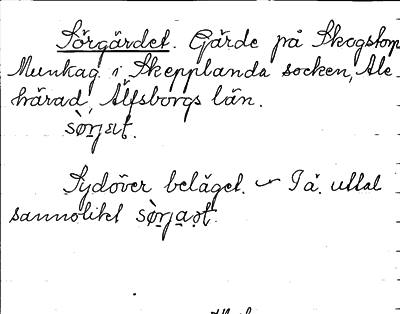 Sörgärdet. Gärde på Skogstorp
Munkag. i Skepplanda socken, Ale
härad, Älfsborgs län.
Sydöver beläget. – I ä. uttal
sannolikt